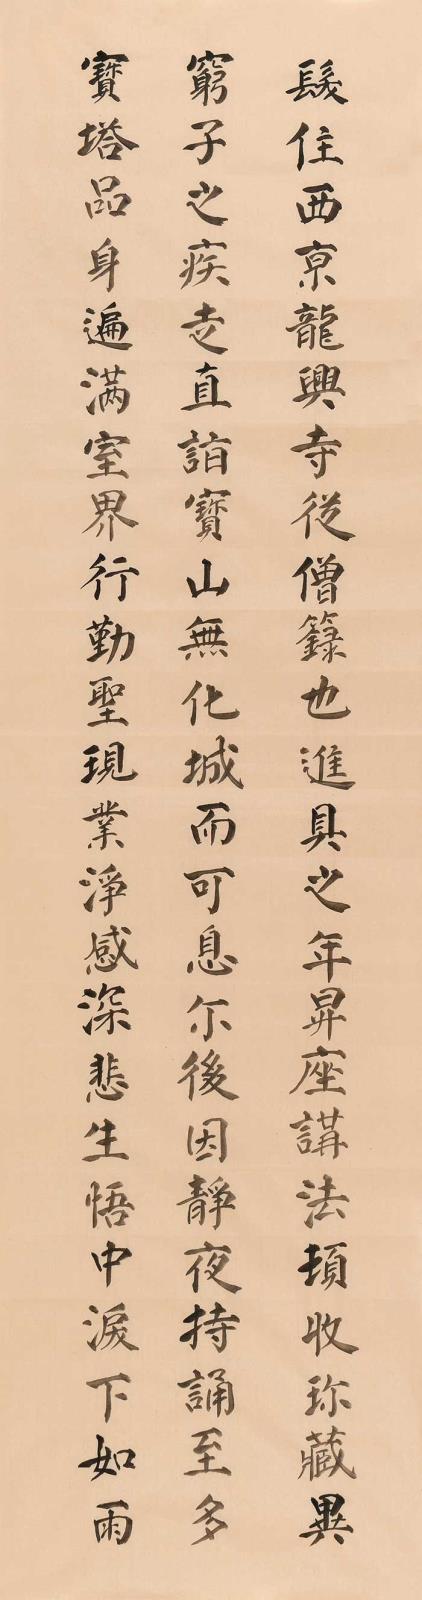 髮住西京龍興寺從僧籙也進具之年昇座講法頓收珎藏異
窮子之疾走直詣寶山無化城而可息尓後因靜夜持誦至多
寶塔品身遍滿室界行勤聖現業淨感深悲生悟中淚下如雨